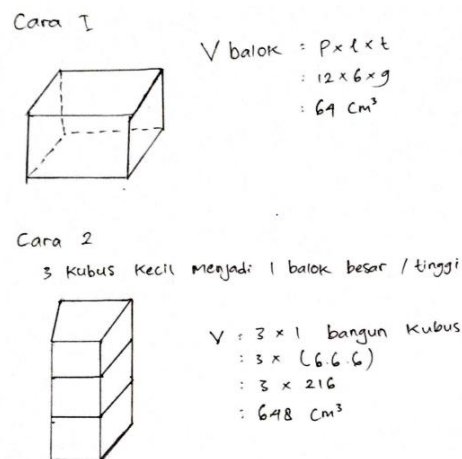 Cara I
V balok : P x l x t
: 12 x 6 x 9
: 64 cm³
Cara 2
3 kubus kecil menjadi 1 balok besar / tinggi
V : 3 x 1 bangun kubus
: 3 x (6.6.6)
: 3 x 216
: 648 cm³